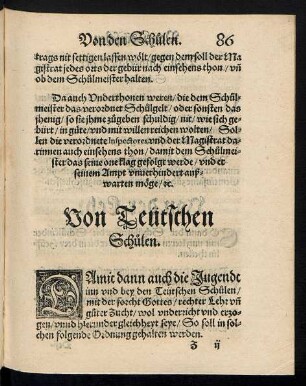 Von den Schůlen. 86
trags nit settigen lassen wölt/ gegen dem soll der Ma
gistrat jedes orts der gebür nach einsehens thon/ vñ
ob dem Schůlmeister halten.
Da auch Vnderthonen weren/ die dem Schůl
meister das verordnet Schůlgelt/ oder sonsten das
jhenig/ so sie jhme zůgeben schuldig/ nit/ wie sich ge
bürt/ in gůte/ vnd mit willen reichen wolten/ Sol
len die verordnete Inspectores vnd der Magistrat da
rinnen auch einsehens thon/ damit dem Schůlmei
ster das seine one klag gefolgt werde/ vnd er
seinem Ampt vnuerhindert auß
warten möge/ ꝛc.
Von Teütschen
Schůlen.
DAmit dann auch die Jugendt
inn vnd bey den Teütschen Schůlen/
mit der forcht Gottes/ rechter Lehr vñ
gůter zucht/ wol vnderricht vnd erzo
gen/ vnnd hierunder gleichheyt seye/ So soll in sol
chen folgende Ordnung gehalten werden.
Z ij